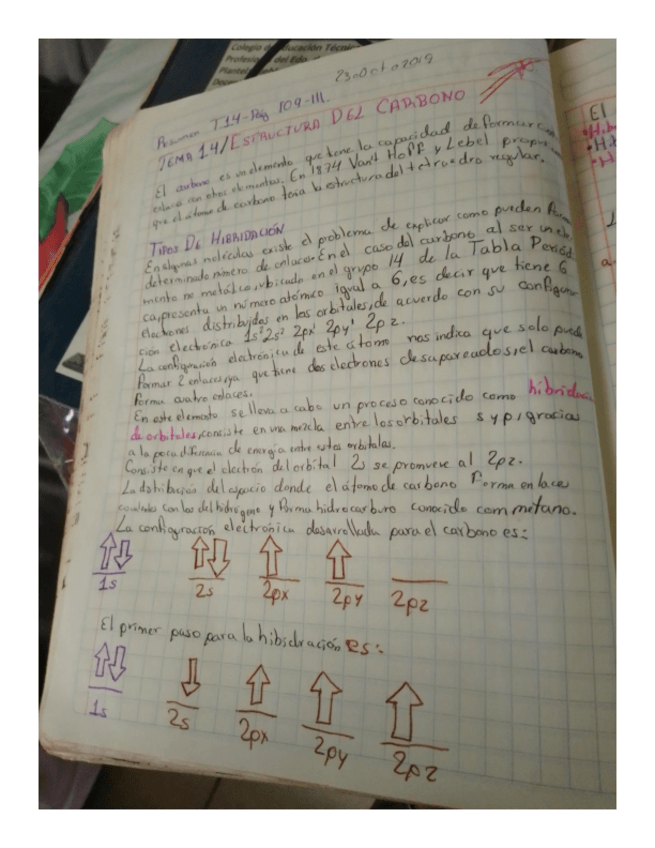 Colegio de Educación Técnic
Profesio del Edo. de
Plantel
Doce
23 Octo 2019
Resumen T14-Pág 109-111.
TEMA 14/ESTRUCTURA DEL CARBONO
El carbono es un elemento que tiene la capacidad de formar
enlaces con otros elementos. En 1874 Van't Hoff y Lebel
que el átomo de carbono tenía la estructura del tetraedro regular.
TIPOS DE HIBRIDACIÓN
En algunas moléculas existe el problema de explicar como pueden
determinado número de enlaces. En el caso del carbono al ser un
mento no metálico, ubicado en el grupo 14 de la Tabla Periód
ca, presenta un número atómico igual a 6, es decir que tiene 6
electrones distribuidos en los orbitales, de acuerdo con su configura
ción electrónica 1s² 2s² 2px¹ 2py¹ 2pz.
La configuración electrónica de este átomo nos indica que solo puede
formar 2 enlaces, ya que tiene dos electrones desapareados, el carbono
forma cuatro enlaces.
En este elemento se lleva a cabo un proceso conocido como hibridación
de orbitales, consiste en una mezcla entre los orbitales s y p, gracias
a la poca diferencia de energía entre estos orbitales.
Consiste en que el electrón del orbital 2s se promueve al 2pz.
La distribución del espacio donde el átomo de carbono forma enlace
covalente con los del hidrógeno y forma hidrocarburo conocido com metano.
La configuración electrónica desarrollada para el carbono es:
1s 2s 2px 2py 2pz
El primer paso para la hibidración es:
1s 2s 2px 2py 2pz
El